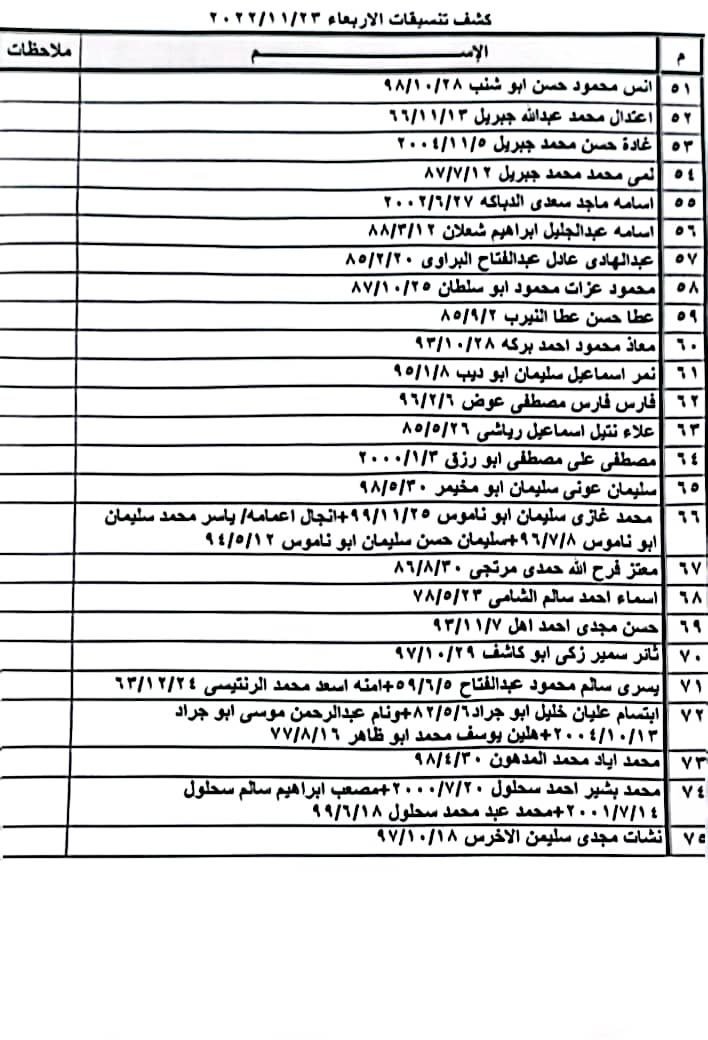 كشف تنسيقات الاربعاء ٢٠٢٢/١١/٢٣
م الإســـــم ملاحظات
٥١ انس محمود حسن ابو شنب ٩٨/١٠/٢٨
٥٢ اعتدال محمد عبدالله جبريل ٦٦/١١/١٣
٥٣ غادة حسن محمد جبريل ٢٠٠٤/١١/٥
٥٤ نمى محمد محمد جبريل ٨٧/٧/١٢
٥٥ اسامه ماجد سعدى الدباكه ٢٠٠٢/٦/٢٧
٥٦ اسامه عبدالجليل ابراهيم شعلان ٨٨/٣/١٢
٥٧ عبدالهادى عادل عبدالفتاح البراوى ٨٥/٢/٢٠
٥٨ محمود عزات محمود ابو سلطان ٨٧/١٠/٢٥
٥٩ عطا حسن عطا النيرب ٨٥/٩/٢
٦٠ معاذ محمود احمد بركه ٩٣/١٠/٢٨
٦١ نمر اسماعيل سليمان ابو ديب ٩٥/١/٨
٦٢ فارس فارس مصطفى عوض ٩٦/٢/٦
٦٣ علاء نتيل اسماعيل رياشى ٨٥/٥/٢٦
٦٤ مصطفى على مصطفى ابو رزق ٢٠٠٠/١/٣
٦٥ سليمان عونى سليمان ابو مخيمر ٩٨/٥/٣٠
٦٦ محمد غازى سليمان ابو ناموس ٩٩/١١/٢٥+انجال اعمامه/ ياسر محمد سليمان
ابو ناموس ٩٦/٧/٨+سليمان حسن سليمان ابو ناموس ٩٤/٥/١٢
٦٧ معتز فرح الله حمدى مرتجى ٨٦/٨/٣٠
٦٨ اسماء احمد سالم الشامى ٧٨/٥/٢٣
٦٩ حسن مجدى احمد اهل ٩٣/١١/٧
٧٠ ثائر سمير زكى ابو كاشف ٩٧/١٠/٢٩
٧١ يسرى سالم محمود عبدالفتاح ٥٩/٦/٥+امنه اسعد محمد الرنتيسى ٦٣/١٢/٢٤
٧٢ ابتسام عليان خليل ابو جراد٨٢/٥/٦+ونام عبدالرحمن موسى ابو جراد
٢٠٠٤/١٠/١٣+هلين يوسف محمد ابو ظاهر ٧٧/٨/١٦
٧٣ محمد اياد محمد المدهون ٩٨/٤/٣٠
٧٤ محمد بشير احمد سحلول ٢٠٠٠/٧/٢٠+مصعب ابراهيم سالم سحلول
٢٠٠١/٧/١٤+محمد عبد محمد سحلول ٩٩/٦/١٨
٧٥ نشات مجدى سليمن الاخرس ٩٧/١٠/١٨